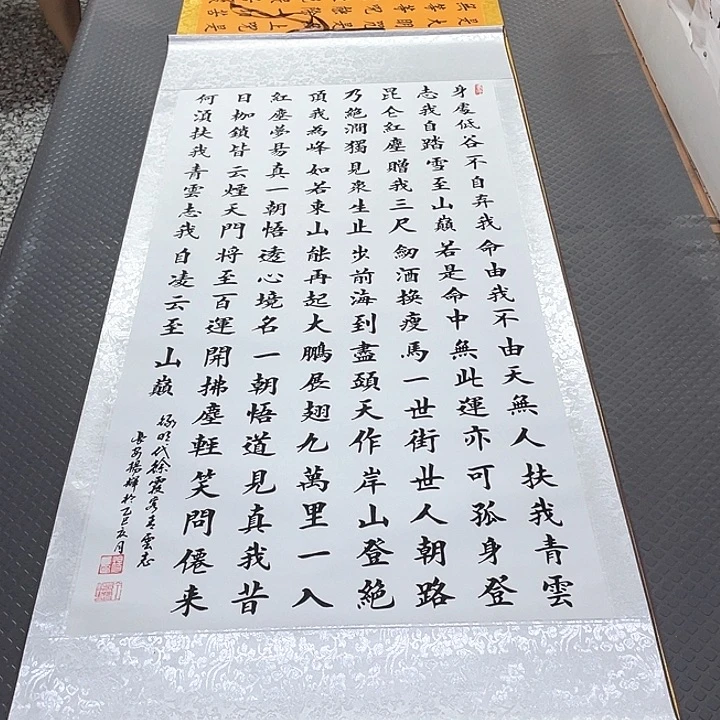 身處低谷不自弃我命由我不由天無人扶我青雲
志我自踏雪至山巔若是命中無此運亦可孤身登
昆仑紅塵贈我三尺劒酒換瘦馬一世街世人朝路
乃絶澗獨見衆生止步前海到盡頭天作岸山登絶
頂我為峰如若東山能再起大鵬展翅九萬里一入
紅塵夢易真一朝悟透心境名一朝悟道見真我昔
日枷鎖皆云煙天門將至百運開拂塵輕笑問僊来
何須扶我青雲志我自凌云至山巔
録明代徐霞客青雲志
長安楊輝於乙巳月